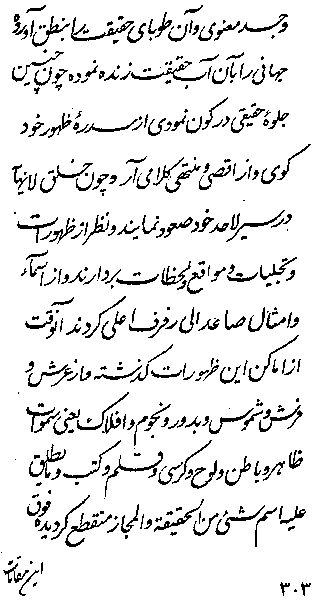 وجد معنوی و آن طوبای حقیقت را بنطق آورده
جهانی را بآن آب حقیقت زنده نموده چون چنین
جلوهٔ حقیقی در کون نمودی از سدرهٔ ظهور خود
کوی و از اقصی و منتهی کلامی آر و چون خلق لانهایه
در سیر لاحد خود صعود نمایند و نظر از ظهورات
و تجلیات و مواقع و لحظات بردارند و از اسماء
و امثال صاعد الی رفرف اعلی کردند آنوقت
از اماکن این ظهورات کذشته و از عرش و
فرش و شموس و بدور و نجوم و افلاک یعنی سموات
ظاهر و باطن و لوح و کرسی و قلم و کتب و ما یطلق
علیه اسم شئ من الحقیقة و المجاز منقطع کردیده فوق
این مقامات
۳۰۳